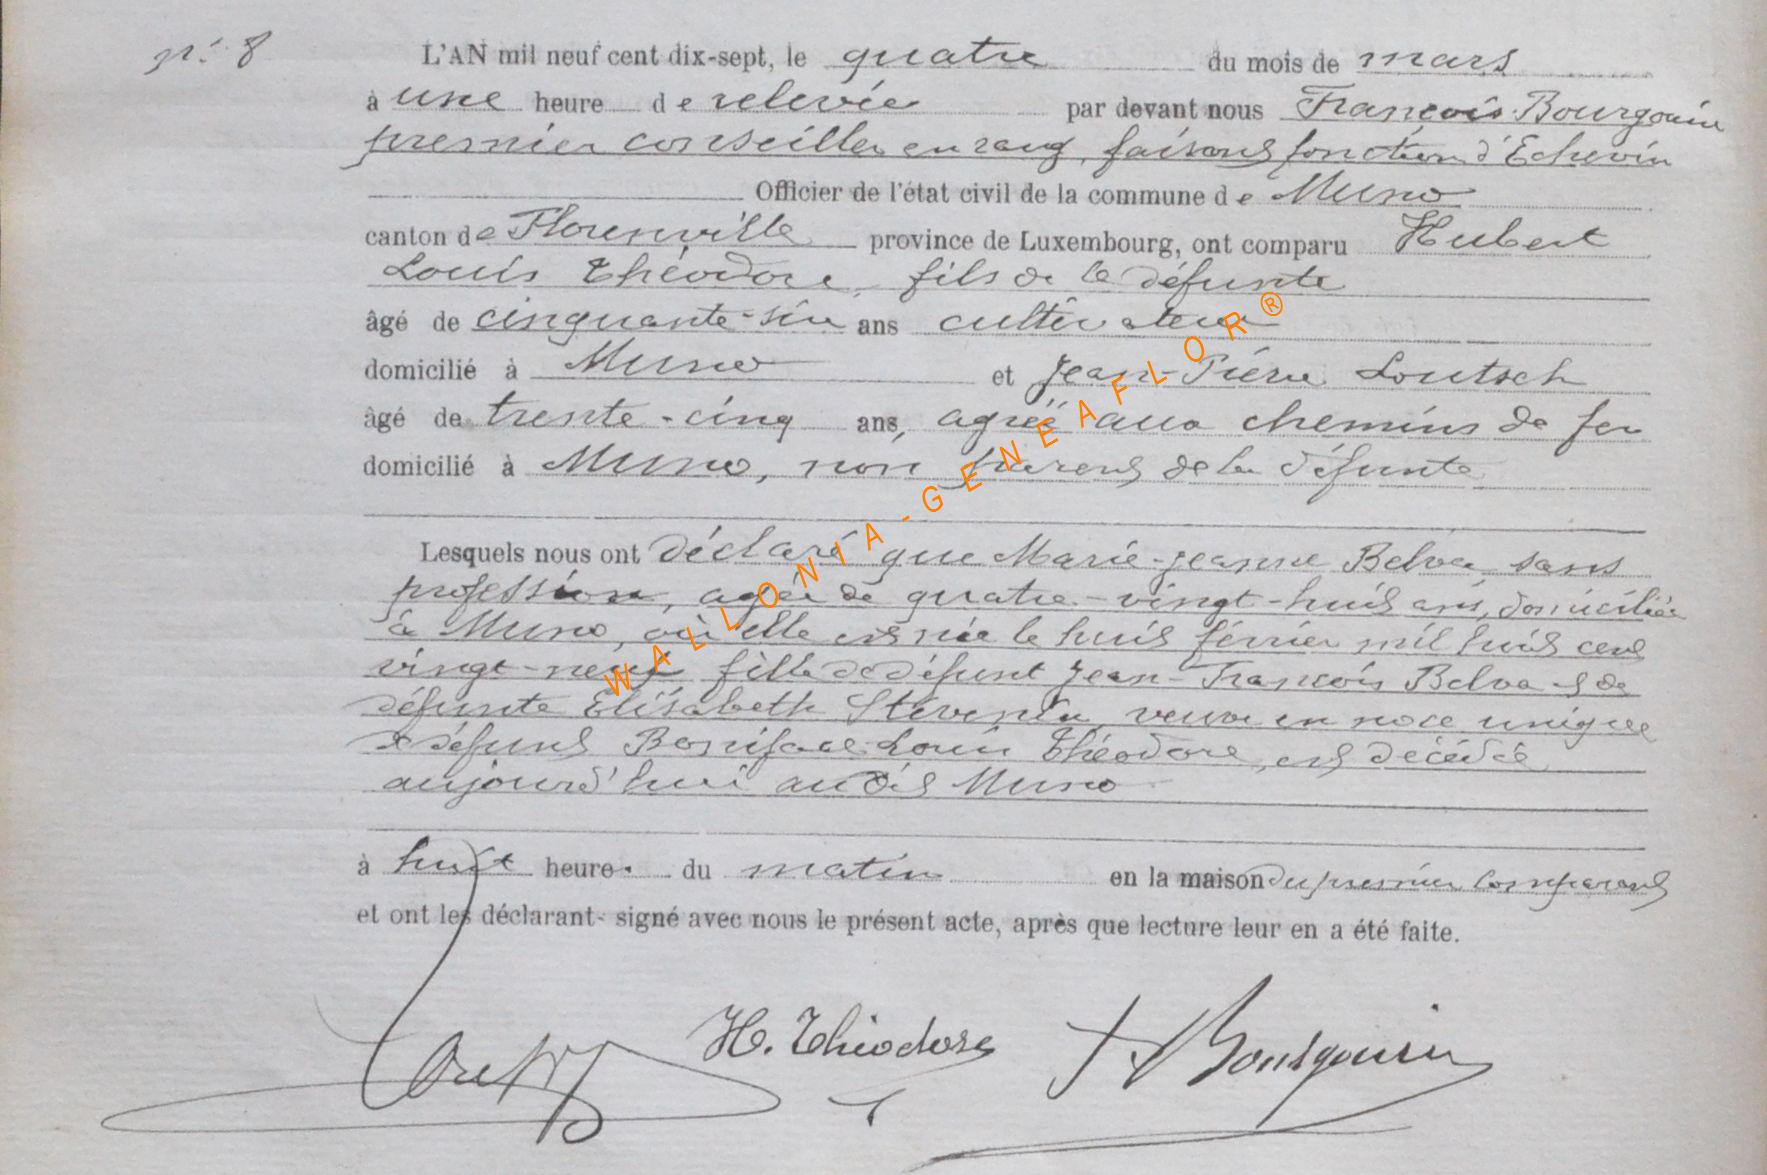 n° 8
L'AN mil neuf cent dix-sept, le quatre du mois de mars
à une heure de relevée par devant nous François Bourgouin
premier conseiller en rang, faisant fonction d'Echevin
Officier de l'état civil de la commune de Muno
canton de Florenville province de Luxembourg, ont comparu Hubert
Louis Théodore, fils de la défunte
âgé de cinquante-six ans cultivateur
domicilié à Muno et Jean-Pierre Loutsch
âgé de trente-cinq ans, agréé aux chemins de fer
domicilié à Muno, non parent de la défunte
Lesquels nous ont déclaré que Marie-Jeanne Belva sans
profession, agée de quatre-vingt-huit ans, domiciliée
à Muno, où elle est née le huit février mil huit cent
vingt-neuf fille de défunt Jean-François Belva et de
défunte Elisabeth Stevenin, veuve en noce unique
de défunt Boniface Louis Théodore, est décédée
aujourd'hui audit Muno
à huit heure. du matin en la maison du premier comparant
et ont les déclarant- signé avec nous le présent acte, après que lecture leur en a été faite.
H. Théodore
F Bourgouin
WALLONIA-GENEAFLOR®